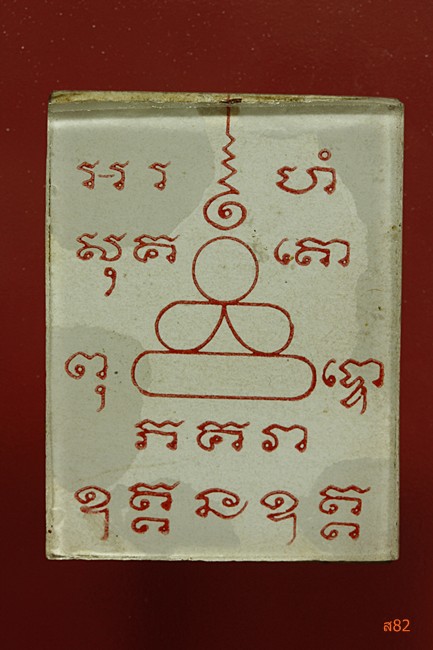 អ រ ហំ
សុគ តោ
ពុ ទ្ធោ
ភគវា
ឧត្ត ឧត្ត
ส82